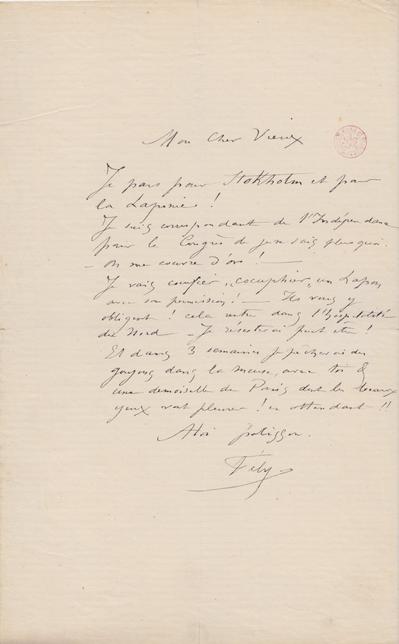 Mon Cher Vieux
Je pars pour Stokholm et pour
la Laponie !
Je suis correspondant de l'Indépendance
pour le Congrès de je ne sais plus quoi.
— On me couvre d'or ! —
Je vais cocufier, "cocuphier", un Lapon
avec sa permission ! — Ils vous y
obligent ! cela entre dans l'hospitalité
du Nord — Je résisterai peut être !
Et dans 3 semaines je pêcherai des
goujons dans la meuse, avec toi &
une demoiselle de Paris dont les beaux
yeux vont pleurer ! en attendant !!
A toi polisson.
Fély